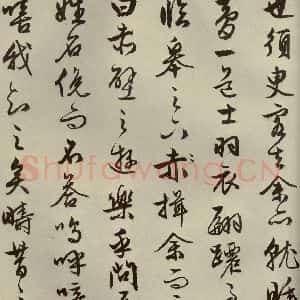 也須臾客去余亦就睡
夢一道士羽衣翩躚
臨皋之下赤揖余而
曰赤壁之遊樂乎問
姓名俛而不答嗚呼噫
嘻我知之矣疇昔之
Shufawang.CN